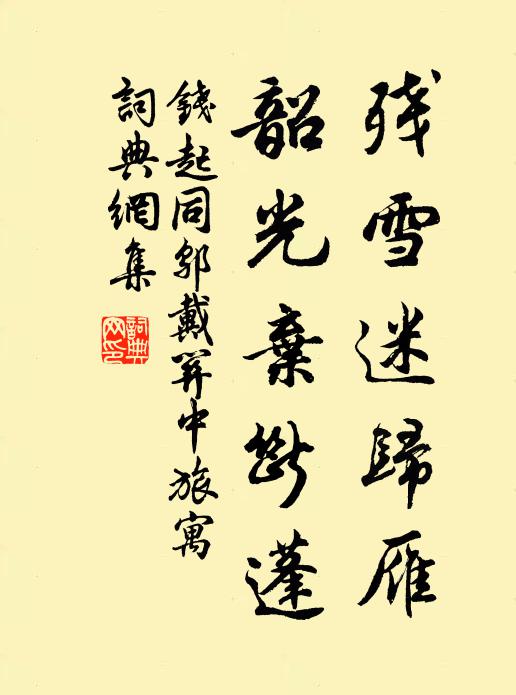 残雪迷歸雁
韶光棄斷蓬
錢起同鄔戴關中旅寓
詞典網集
詞典網印